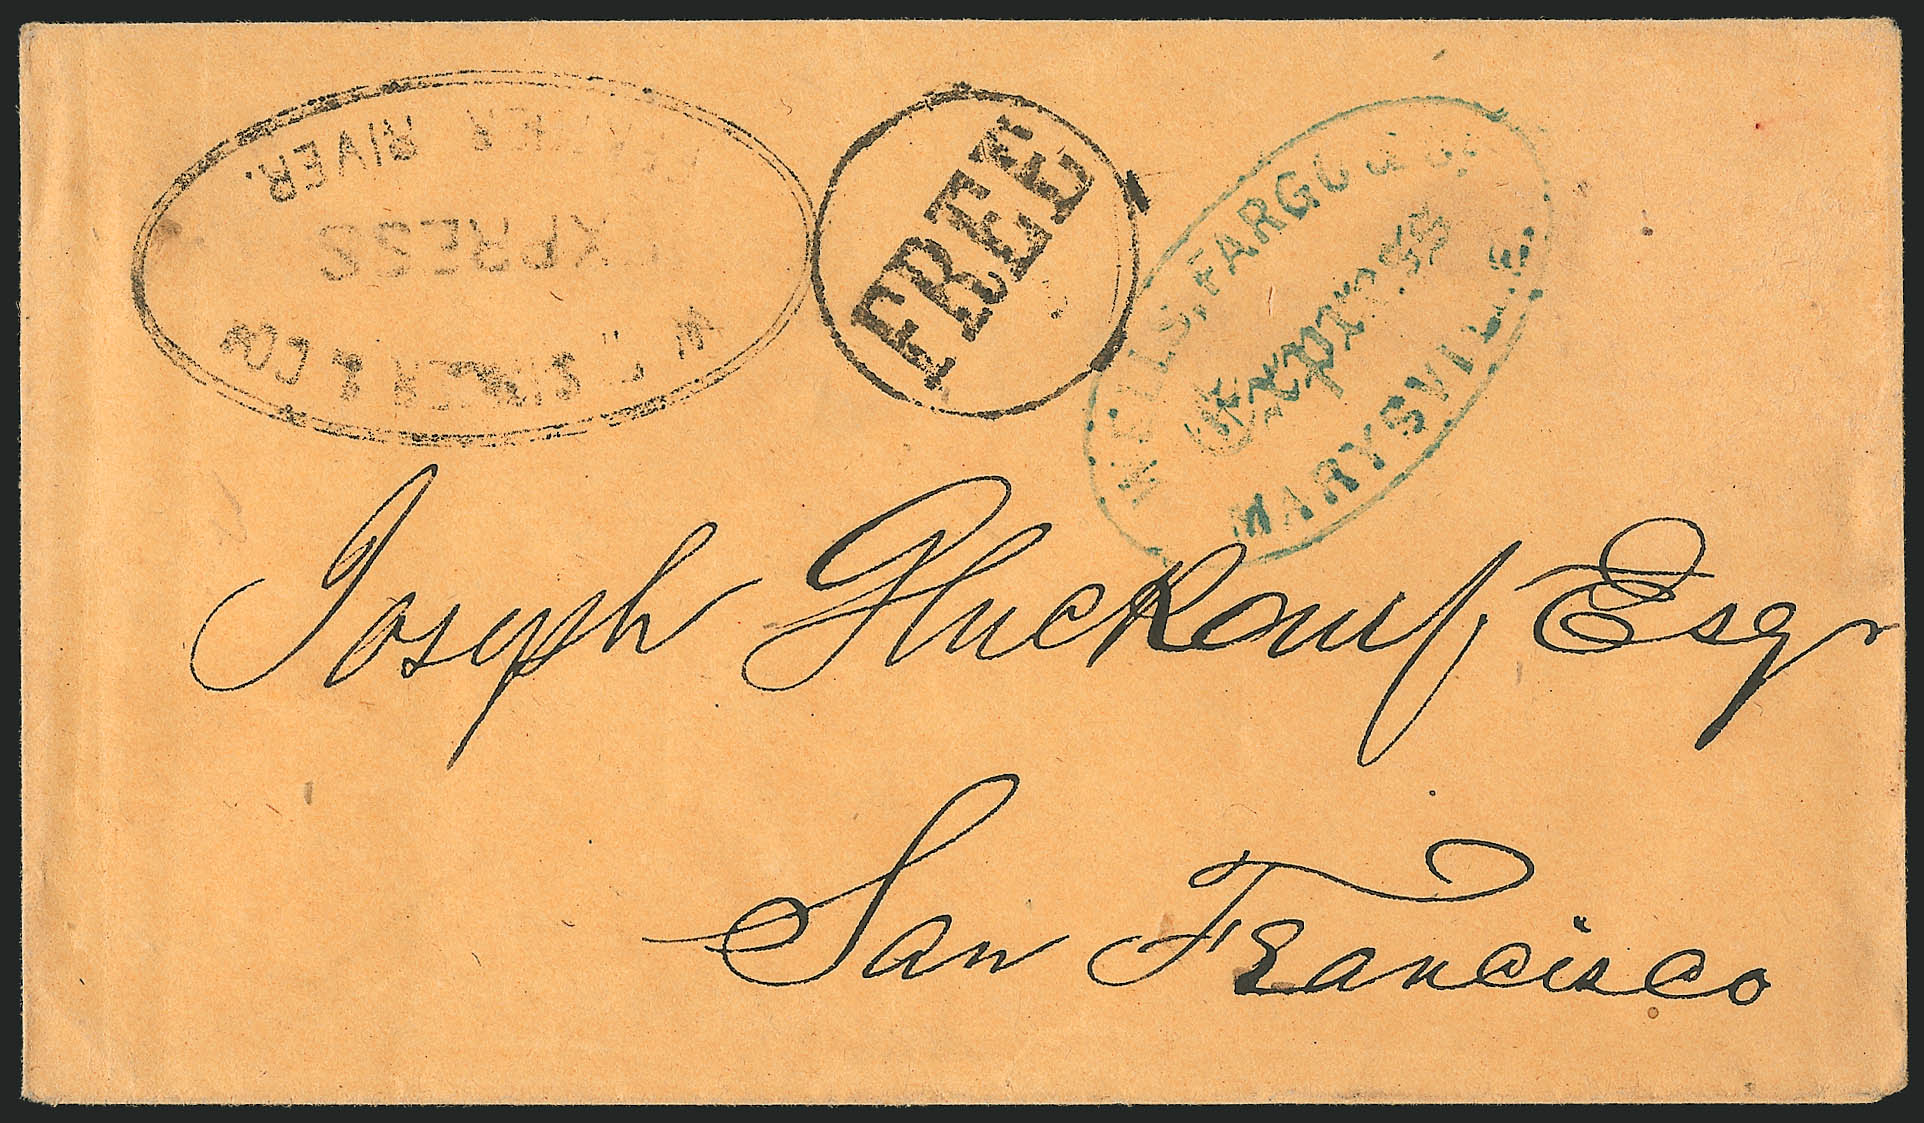 & CO'S
EXPRESS
FEATHER RIVER.
FREE
WELLS, FARGO & CO.
Express
MARYSVILLE.
Joseph Gluckauf, Esqr
San Francisco